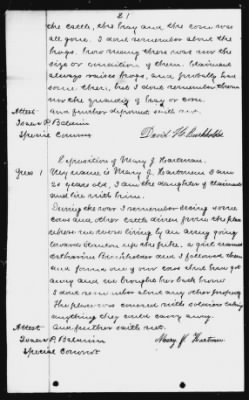 21
the cattle, the hay and the corn was
all gone. I dont remember about the
hogs, how many there was nor the
size or condition of them. Claimant
always raises hogs, and probably has
some then, but I dont remember them
nor the quantity of hay or corn.
Attest and further deponent saith not.
Isaac P. Baldwin
Special Commr David H. Burkholder
Deposition of Mary J. Hartman.
Ques 1 My name is Mary J. Hartman I am
20 years old, I am the daughter of claimant
and live with him.
During the war I remember seeing some
cows and other cattle driven from the place
where we were living by an army going
towards up the pike, a girl named
Catharine and I followed them
and found one of our cows that had got
away and we brought her back home
I dont remember about any other property.
The place was covered with soldiers taking
anything they could carry away.
Attest and further saith not.
Isaac P. Baldwin Mary J. Hartman
Special Commr